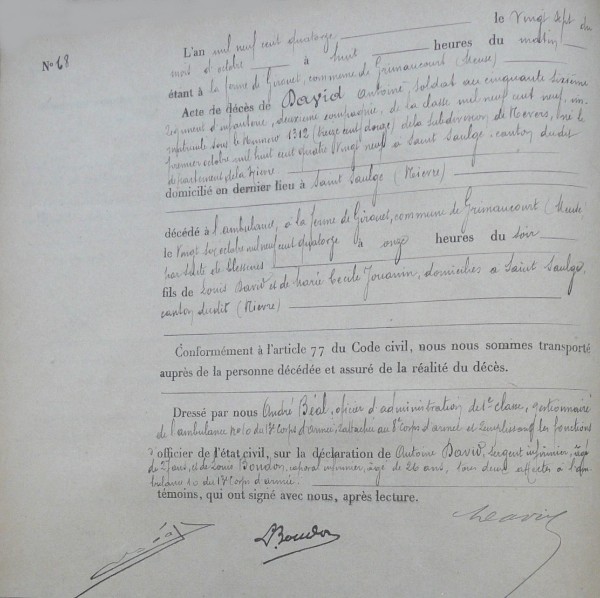 No 68
L'an mil neuf cent quatorze le Vingt sept du
mois d'octobre à huit heures du matin
étant à la ferme de Girouet, commune de Grimaucourt (Meuse)
Acte de décès de David Antoine soldat au cinquante sixième
régiment d'infanterie, deuxième compagnie, de la classe mil neuf cent neuf, im-
matriculé sous le Numéro 1312 (treize cent douze) de la subdivision de Nevers, né le
premier octobre mil huit cent quatre Vingt neuf à Saint Saulge canton dudit
département de la Nièvre
domicilié en dernier lieu à Saint Saulge (Nièvre)
décédé à l'ambulance, à la ferme de Girouet, commune de Grimaucourt (Meuse
le Vingt six octobre mil neuf cent quatorze à onze heures du soir
par suite de blessures
fils de Louis David et de Marie Cécile Jouanin, domiciliés à Saint Saulge,
canton dudit (Nièvre)
Conformément à l'article 77 du Code civil, nous nous sommes transporté
auprès de la personne décédée et assuré de la réalité du décès.
Dressé par nous André Béal, officier d'administration de 1re classe, gestionnaire
de l'ambulance no 10 du 17e Corps d'Armée, rattachée au 8e Corps d'armée et les fonctions
d'officier de l'état civil, sur la déclaration de Antoine David, sergent infirmier, âgé
de ans, et de Louis Boudon, caporal infirmier, âgé de 26 ans, tous deux affectés à l'am-
bulance 10 du 17e Corps d'armée
témoins, qui ont signé avec nous, après lecture.
Béal LBoudon David